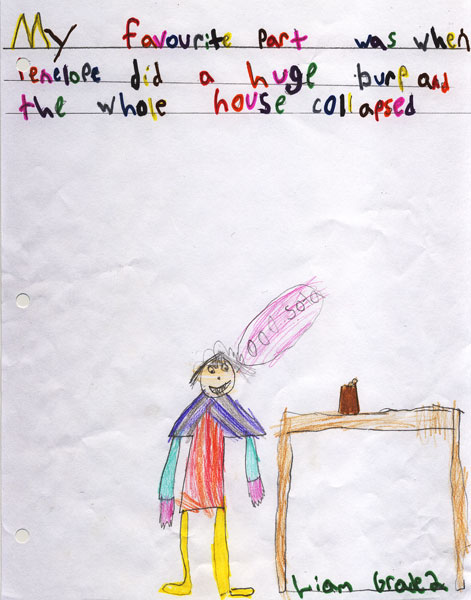 My favourite part was when
Penelope did a huge burp and
the whole house collapsed
OOO soda
Liam Grade 2